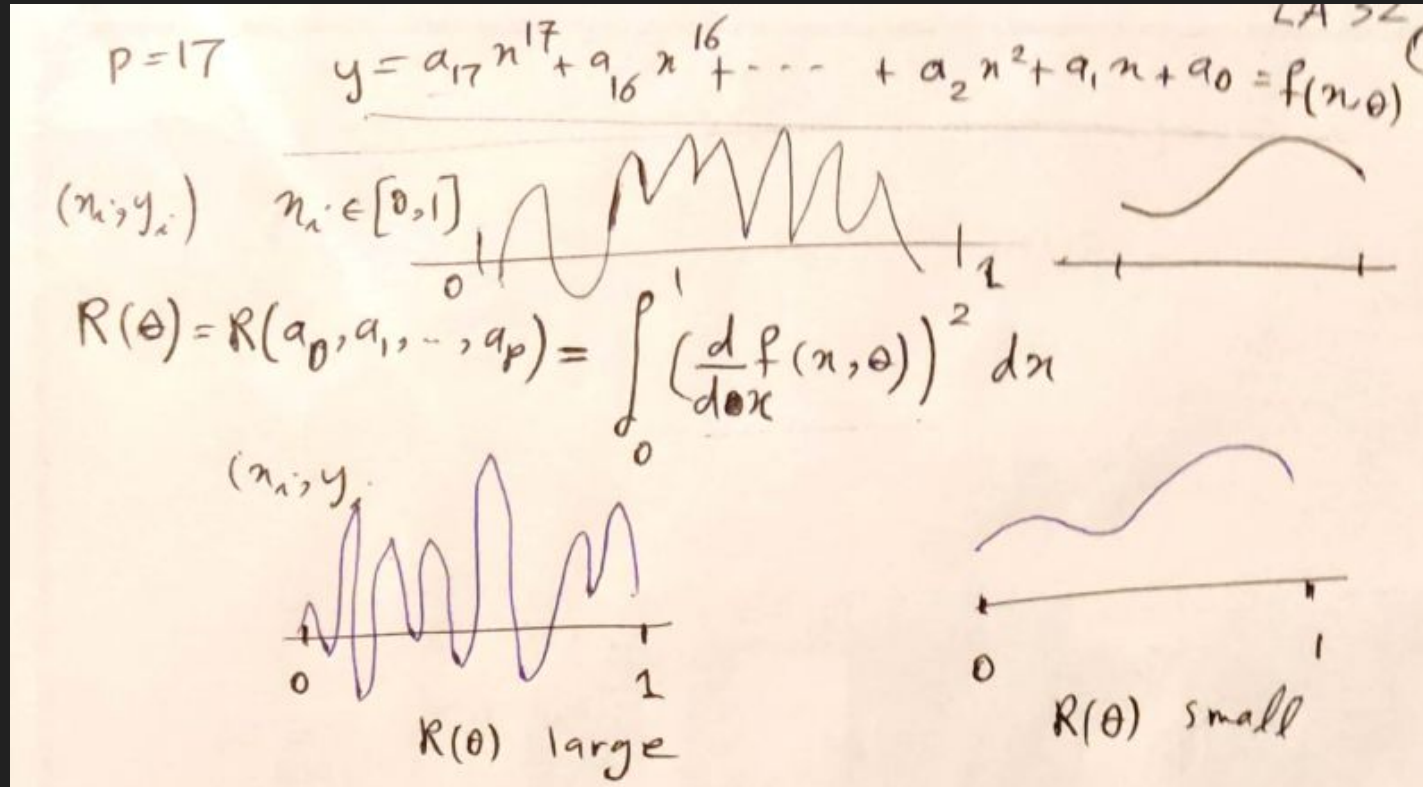 LA 52
p=17 y = a₁₇ x¹⁷ + a₁₆ x¹⁶ + ---- + a₂ x² + a₁ x + a₀ = f(x,θ)
(xᵢ, yᵢ) xᵢ ∈ [0,1]
0 1
R(θ) = R(a₀, a₁, .., aₚ) = ∫₀¹ (d/dx f(x,θ))² dx
(xᵢ, yᵢ
0 1
0 1
R(θ) large
R(θ) small